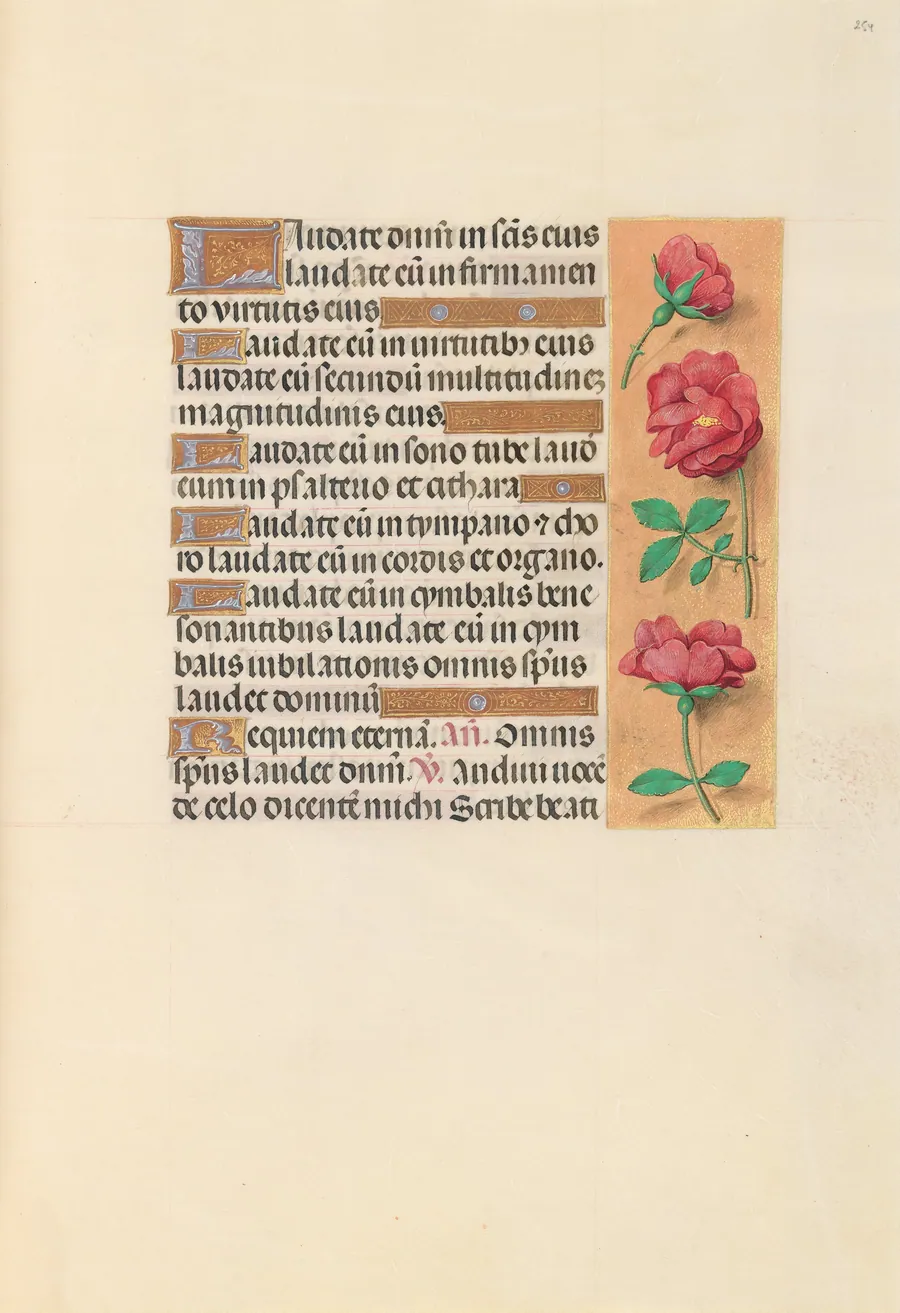 254
Laudate dnm̄ in sc̄is eius
laudate eū in firmamen
to virtutis eius
Laudate eū in uirtutibꝫ eius
laudate eū secundū multitudinē
magnitudinis eius.
Laudate eū in sono tube laud̄
eum in psalterio et cithara
Laudate eū in tympano ⁊ cho
ro laudate eū in cordis et organo.
Laudate eū in cymbalis bene
sonantibus laudate eū in cym
balis iubilationis omnis sp̄us
laudet dominū
Requiem eternā. An̄. Omnis
sp̄us laudet dnm̄. V̄. Audiui uocē
de celo dicentē michi Scribe beati